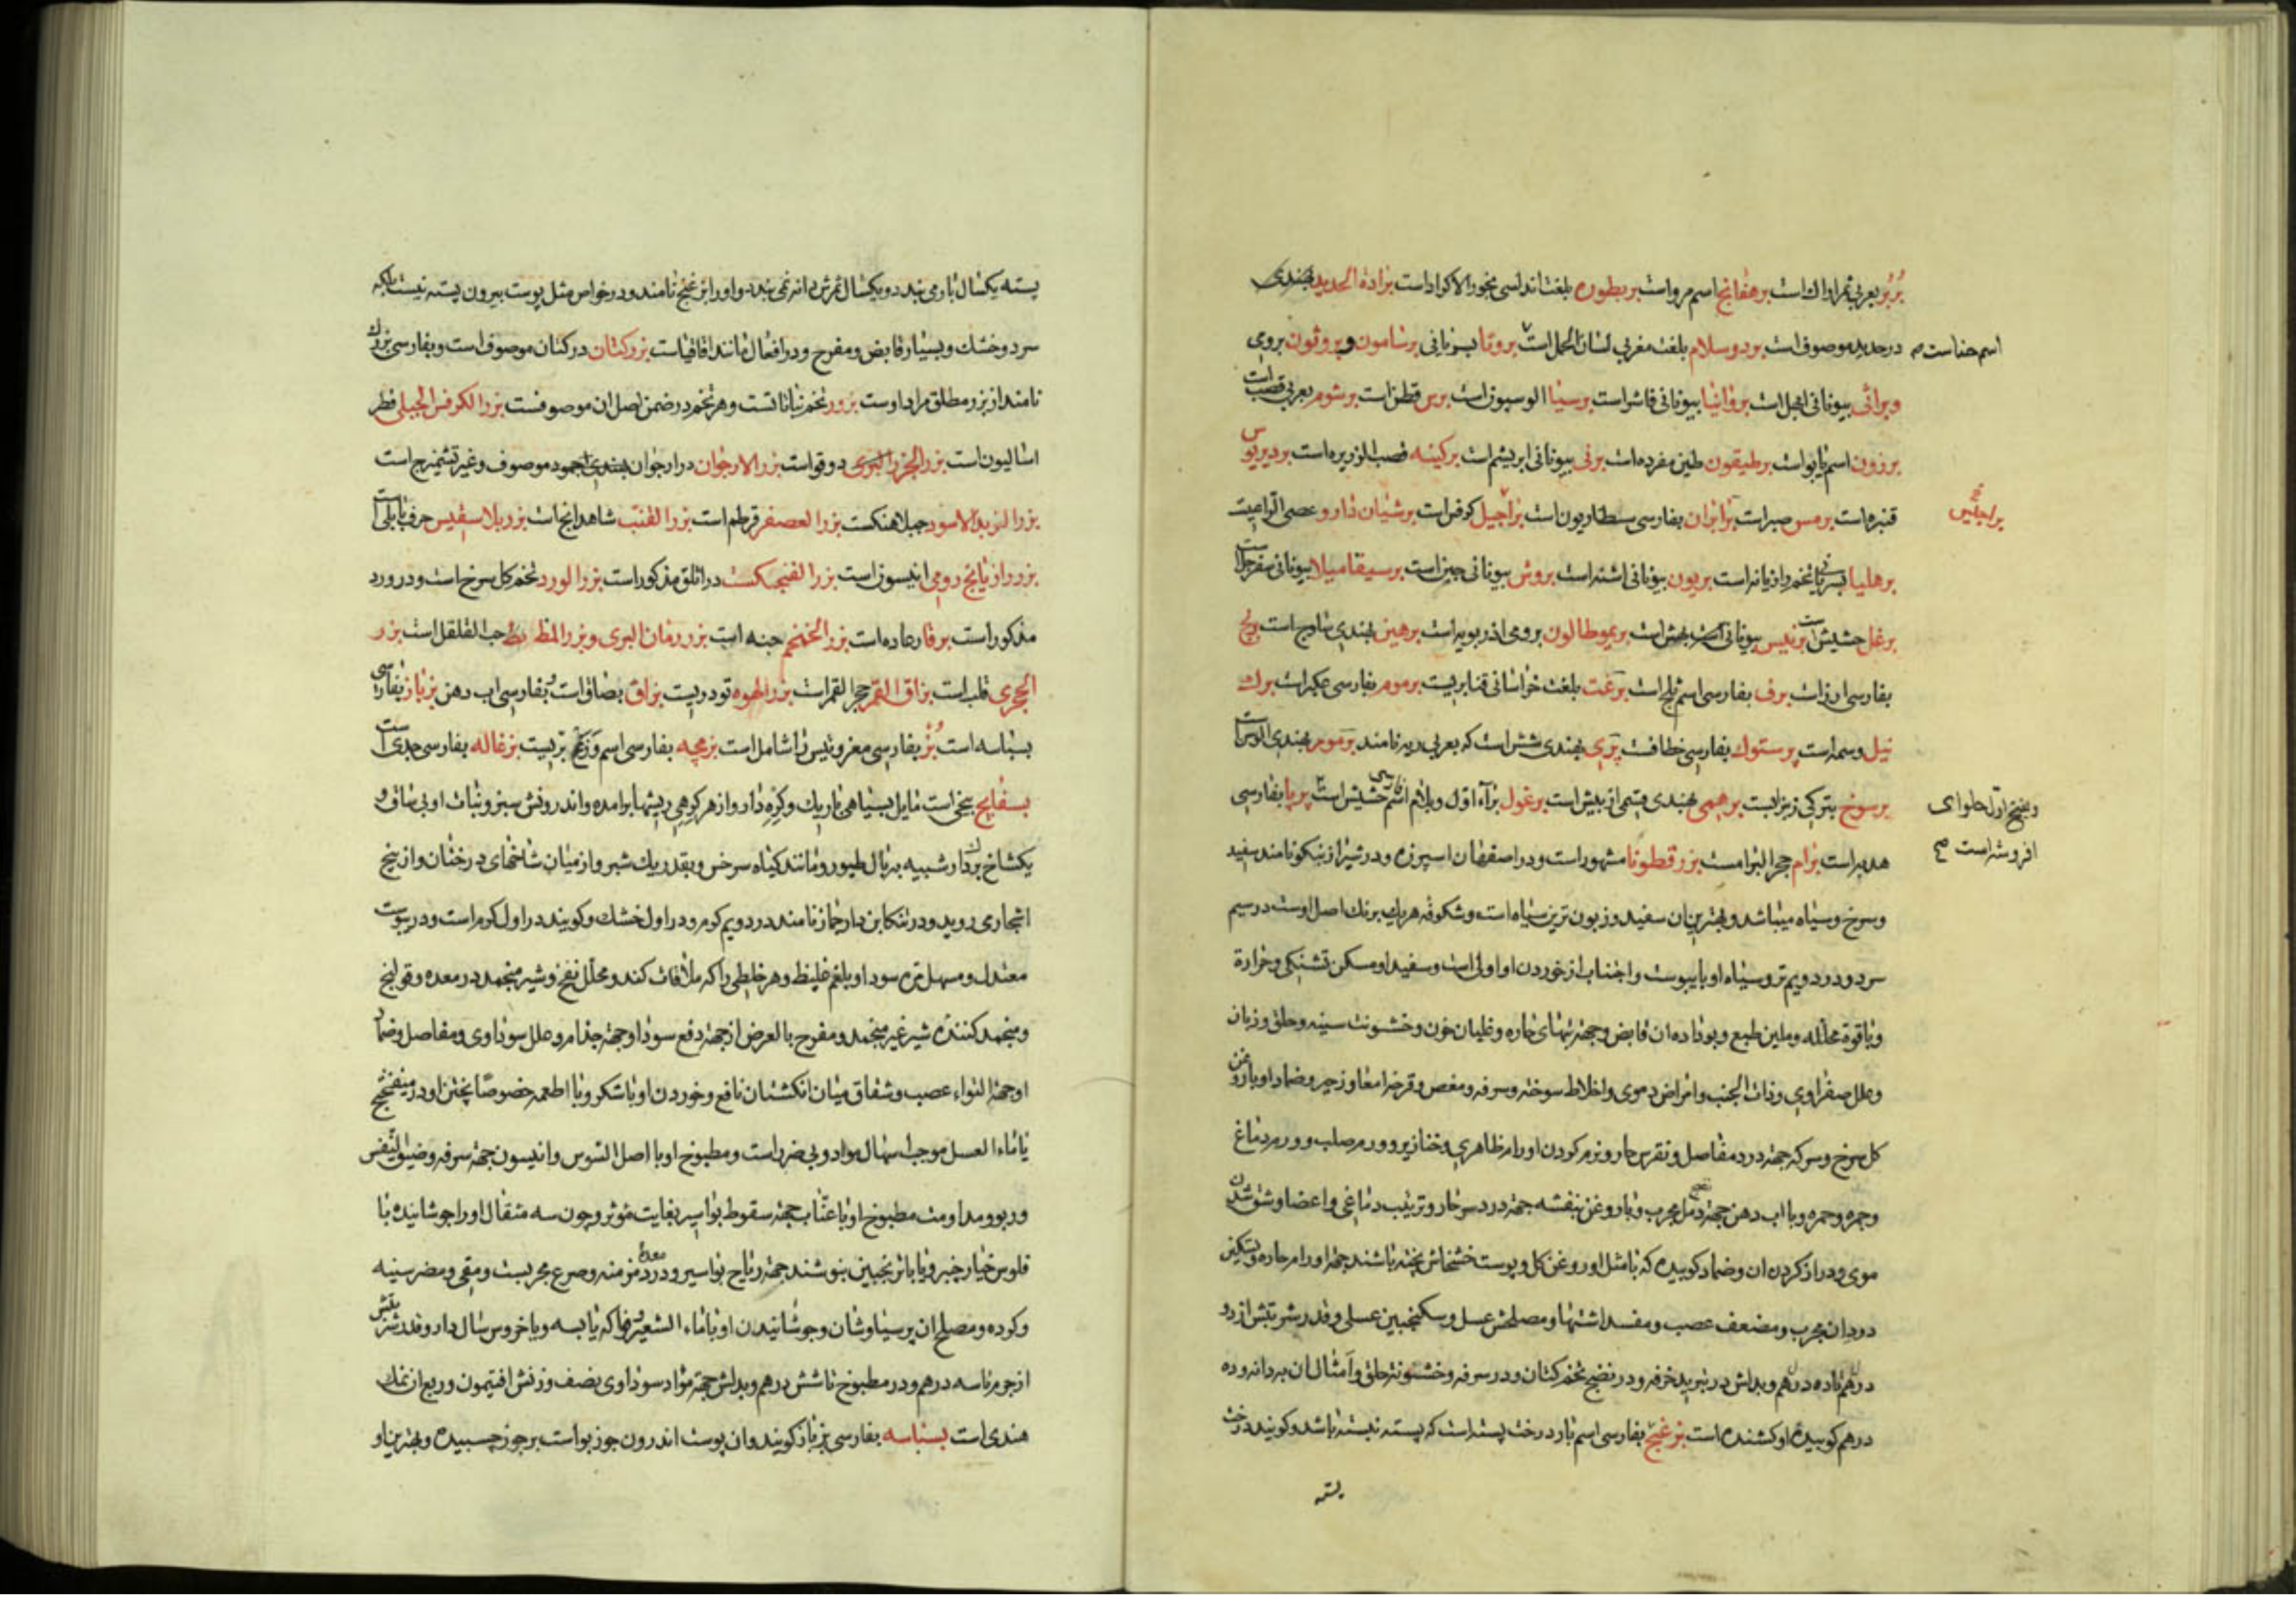 بُربُر بعربی ثمر اراک است برهفانج اسم مرو است بربطوره بلغت اندلسی بخور الاکراد است برادة الحدید بهندی
در حدید موصوف است بردوسلام بلغت مغربی لسان الحمل است بروتا بیونانی برسامون و بروثون بروی
اسم حناست
وبراثی بیونانی ابهل است بروانیا بیونانی فاشرا است برسنیا الوسیون است برس قطن است برشوم بعربی قصب است
برزون اسم یابو است برطیقون طین مفرده است برنی بیونانی ابریشم است برکینه قصب الذریره است بردیریوس
قنبره است برمس صبر است بزایران بفارسی سطاریون است براجیل کرفس است برشیان دارو عصی الراعیست
برهلیا بسریانی تخم رازیانه است بریون بیونانی اشنه است بروش بیونانی جبن است برسیقامیلا بیونانی سفرجل است
برغل حشیش است برنیس بیونانی بهش است بریموطالون برومی اذربویه است برهین بهندی ساوج است برنج
بفارسی ارز است برف بفارسی اسم ثلج است برغت بلغت خراسانی قنابریست برموم بفارسی عکبر است برک
نیل وسمه است پرستوک بفارسی خطافست پری بهندی شش است که بعربی ریه نامند برمومر بهندی الوس است
برسوخ بترکی زبزابست برهمی بهندی قسمی از بیش است برغول برآء اول و بلام اسم حشیش است پرپا بفارسی
وبنج اول حلوای
افروشه است صح
هدبه است برام حجر البرامست بزر قطونا مشهور است و در اصفهان اسپرزه و در شیراز بنکو نامند سفید
و سرخ و سیاه میباشد و بهترین ان سفید و زبون ترین سیاه است و شکوفه هر یک برنک اصل اوست در سیم
سرد و در دویم تر و سیاه او با یبوست و اجتناب از خوردن او اولی است و سفید او مسکن تشنکی و حرارة
و با قوة محلله و ملین طبع و بو داده ان قابض و جهته تبهای حاره و غلیان خون و خشونت سینه و حلق و زبان
و علل صفراوی و ذات الجنب و امراض دموی و اخلاط سوخته و سرفه و مغص و قرحه امعا و زحیر و ضماد او با روغن
کل سرخ و سرکه جهته درد مفاصل و نقرس حار و نرم کردن اورام ظاهری و خنازیر و ورم صلب و ورم دماغ
و جمره و حمره و با اب دهن جهته نضج دمل مجرب و با روغن بنفشه جهته درد سر حار و ترتیب دماغی و اعضا و شق شدن
موی و دراز کردن ان و ضماد کوبیده که با مثل او روغن کل و پوست خشخاش پخته باشند جهته اورام حاره و تسکین
درد ان مجرب و مضعف عصب و مفسد اشتها و مصلحش عسل و سکنجبین عسلی و قدر شربتش از دو
درهم تا ده درهم و بدلش در تبرید خرفه و در نضج تخم کتان و در سرفه و خشونته حلق و امثال ان به دانه و ده
درهم کوبیده او کشنده است بزغنج بفارسی اسم بار درخت پسته است که پسته نبسته باشد و کویند درخت
پسته
پسته یکسال بار می بندد و یکسال ثمرش دانه نمی بندد و او را بزغنج نامند و در خواص مثل پوست بیرون پسته نیست بلکه
سرد و خشک و بسیار قابض و مفرح و در افعال مانند اقاقیاست بزر کتان در کتان موصوف است و بفارسی بزرک
نامند از بزر مطلق مراد اوست بزور تخم نباتاتست و هر تخم در ضمن اصل ان موصوفست بزر الکرفس الجبلی فطر
اسالیون است بزر الجزر البری دوقو است بزر الارجوان در ارجوان موصوف و غیر تشمیزج است
بزر الزبد الاسود جبلاهنکست بزر العصفر قرطم است بزر القنب شاهدانج است بزر بلا سفیس حرف بابلی است
بزر رازیانج رومی انیسون است بزر الفنجکست در اثلق مذکور است بزر الورد تخم کل سرخ است و در ورد
مذکور است برقار عاده است بزر الخمخم حبه است بزر رمان البری و بزر المظ حب القلقل است بزر
الجری قلب است بزاق القمر حجر القمر است بزر الهوه تودریست بزاق بصاق است بفارسی اب دهن بزباز بفارسی
بسباسه است بُز بفارسی معز و تیس را شامل است بزمچه بفارسی اسم وَزَغ بریست بزغاله بفارسی جدی است
بسفایج بیخی است مایل بسیاهی باریک و کره دار و از هر کرهی ریشها برامده و اندرونش سبز و نبات او بی ساق و
یکشاخ بزدار شبیه به بال طیور و مانند کیاه سرخس و بقدر یک شبر و از میان شاخهای درختان و از بیخ
اشجار می روید و در تنکابن دار خماز نامند در دویم کرم و در اول خشک و کویند در اول کرم است و در یبوست
معتدل و مسهل مره سودا و بلغم غلیظ و هر خلطی را که ملاقات کند و محلل نفخ و شیر منجمد در معده و قولنج
و منجمد کننده شیر غیر منجمد و مفرح بالعرض از جهته دفع سودا و جهته جذام و علل سوداوی و مفاصل و ضماد
او جهته التواء عصب و شقاق میان انکشتان نافع و خوردن او با شکر و با اطعمه خصوصًا پختن او در میفختج
یا ماء العسل موجب اسهال مواد و بی ضرر است و مطبوخ او با اصل السوس و انیسون جهته سرفه و ضیق النفس
و ربو و مداومت مطبوخ او با عنّاب جهته سقوط بواسیر بغایت موثر و چون سه مثقال او را جوشانیده با
فلوس خیار چنبر و یا با ترنجبین بنوشند جهته ریاح بواسیر و درد معده مزمنه و صرع مجربست و مقی و مضر سینه
و کرده و مصلح ان پرسیاوشان و جوشانیدن او با ماء الشعیر و خاکه یابسه و یا خروس سال دار و قدر شربتش
از جرم تا سه درهم و در مطبوخ تا شش درهم و بدلش جهته مواد سوداوی نصف وزنش افتیمون و ربع ان نمک
هندی است بسباسه بفارسی بزباز کویند و ان پوست اندرون جوز بواست بر جوز چسبیده و بهترین او